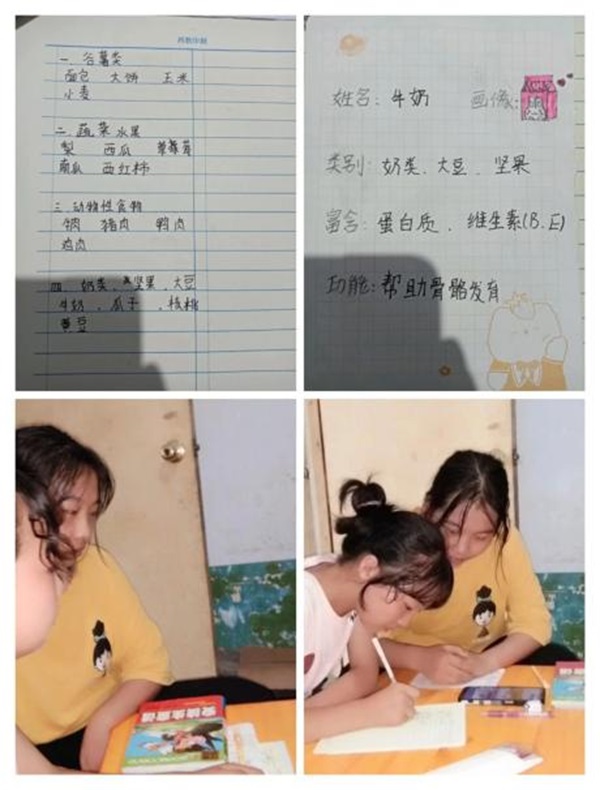 一. 谷薯类
面包 大饼 玉米
小麦
二. 蔬菜水果
梨 西瓜
南瓜 西红柿
三. 动物性食物
猪肉 鸭肉
鸡肉
四. 奶类、坚果、大豆
牛奶、瓜子、核桃
黄豆
姓名: 牛奶 画像:
类别: 奶类、大豆、坚果
富含: 蛋白质、维生素(B、E)
功能: 帮助骨骼发育